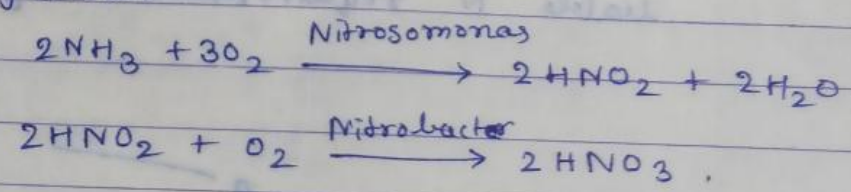 2NH₃ + 3O₂ Nitrosomonas → 2HNO₂ + 2H₂O
2HNO₂ + O₂ Nitrobacter → 2HNO₃.